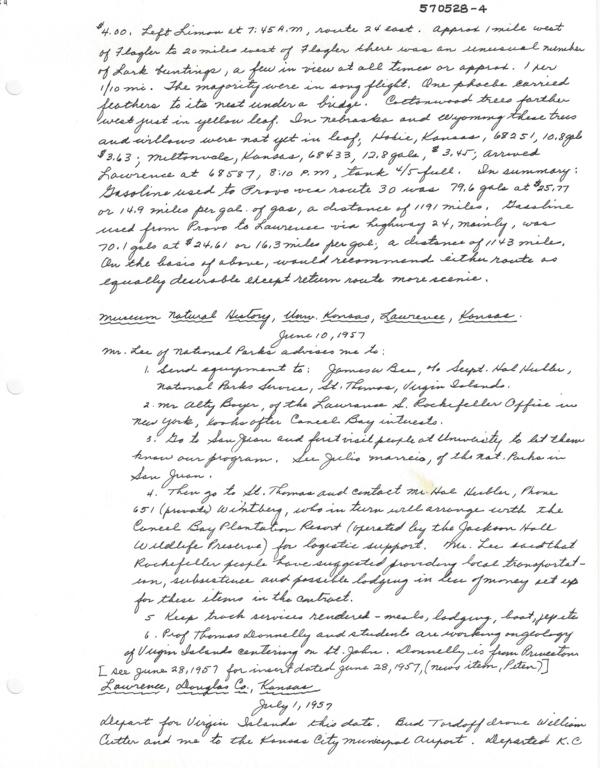 570528-4
$4.00. Left Limon at 7:45 A.M, route 24 east. Approx 1 mile west
of Flagler to 20 miles east of Flagler there was an unusual number
of Lark buntings, a few in view at all times or approx. 1 per
1/10 mi. The majority were in song flight. One phoebe carried
feathers to its nest under a bridge. Cottonwood trees farther
west just in yellow leaf. In Nebraska and Wyoming these trees
and willows were not yet in leaf; Hoxie, Kansas, 68251, 10.8 gals
$3.63; Miltonvale, Kansas, 68433, 12.8 gals, $3.45; arrived
Lawrence at 68587, 8:10 P.M, tank 4/5 full. In summary:
Gasoline used to Provo via route 30 was 79.6 gals at $25.77
or 14.9 miles per gal. of gas, a distance of 1191 miles. Gasoline
used from Provo to Lawrence via highway 24, mainly, was
70.1 gals at $24.61 or 16.3 miles per gal, a distance of 1143 miles.
On the basis of above, would recommend either route as
equally desirable except return route more scenic.
Museum Natural History, Univ. Kansas, Lawrence, Kansas.
June 10, 1957
Mr. Lee of National Parks advises me to:
1. Send equipment to: James W Bee, % Supt. Hal Hubler,
National Parks Service, St. Thomas, Virgin Islands.
2. Mr Alty Boyer, of the Laurance S. Rockefeller Office in
New York, looks after Caneel Bay interests.
3. Go to San Juan and first visit people at University to let them
know our program. See Julio, of the Nat. Parks in
San Juan.
4. Then go to St. Thomas and contact Mr. Hal Hubler, Phone
651 (private), who in turn will arrange with the
Caneel Bay Plantation Resort (operated by the Jackson Hole
Wildlife Preserve) for logistic support. Mr. Lee said that
Rockefeller people have suggested providing local transportat-
ion, subsistence and possible lodging in lieu of money set up
for these items in the contract.
5 Keep track services rendered - meals, lodging, boat, jeep etc
6. Prof Thomas Donnelly and students are working on geology
of Virgin Islands centering on St. John. Donnelly is from Princeton
[See June 28, 1957 for insert dated June 28, 1957, (news item, Peten)]
Lawrence, Douglas Co., Kansas
July 1, 1957
Depart for Virgin Islands this date. Bud Tordoff drove William
Cutter and me to the Kansas City Municipal Airport. Departed K.C